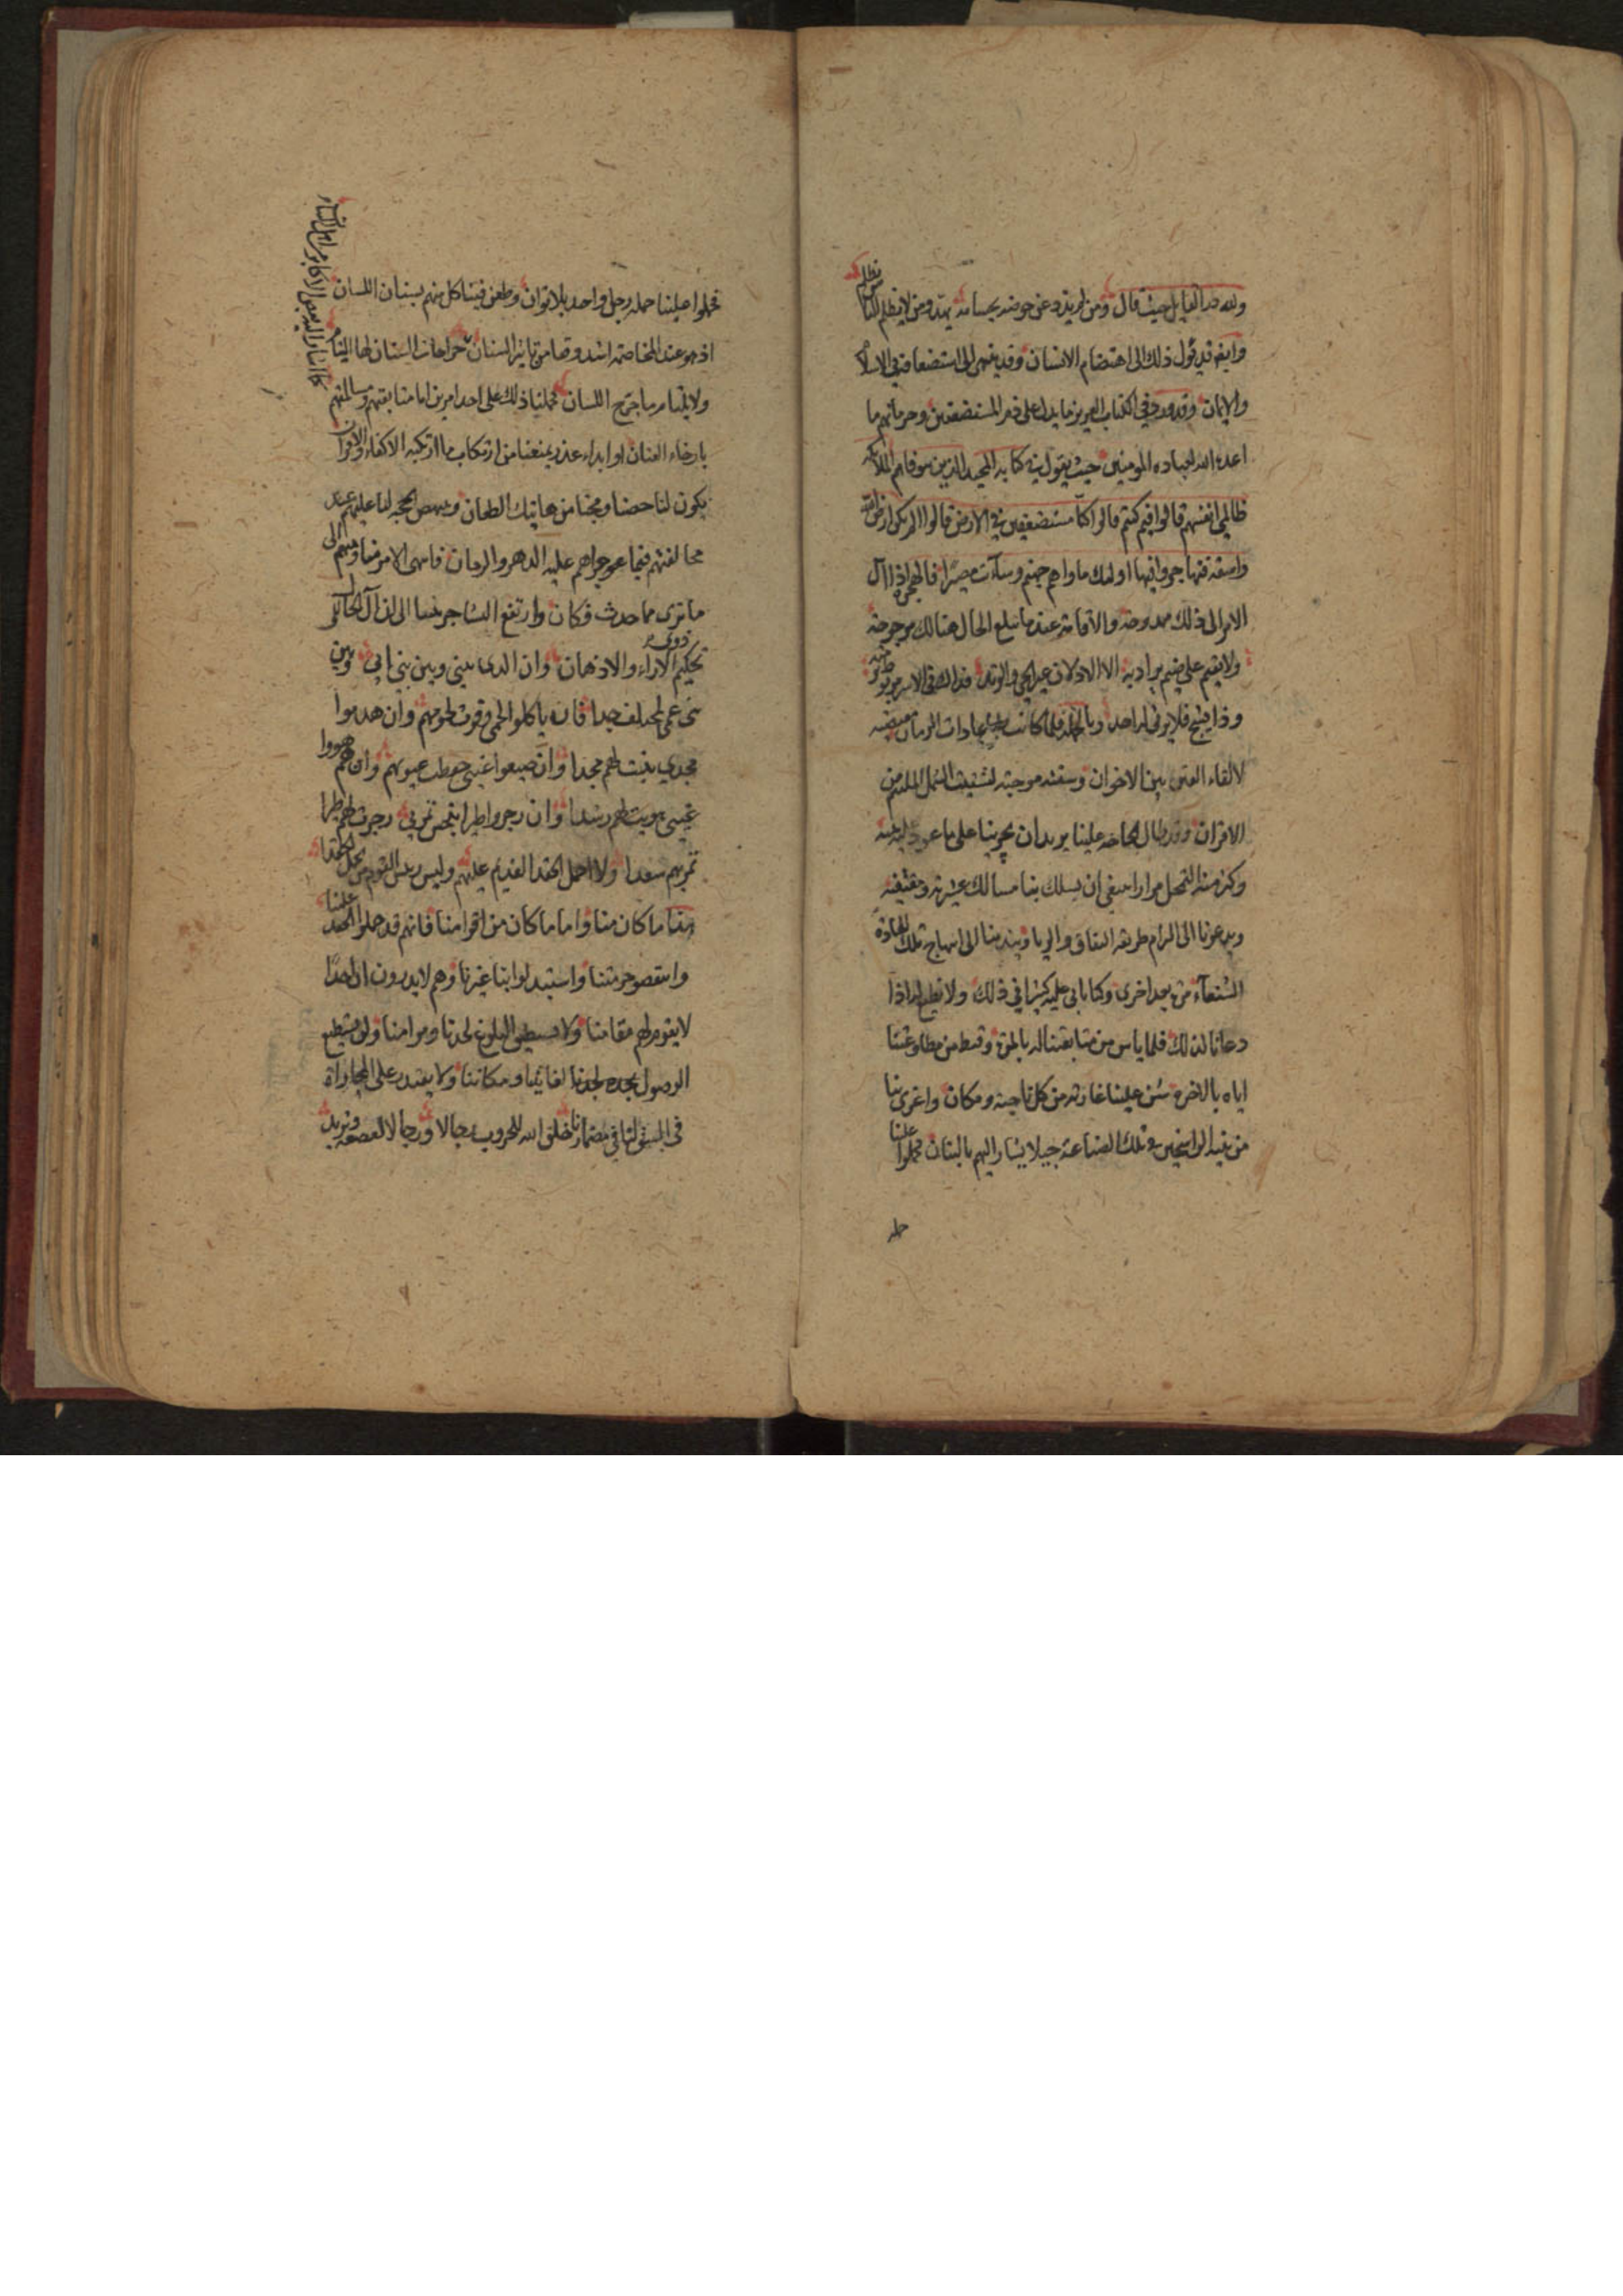 ولله در القايل حيث قال ومن لم يذد عن حوضه بحسامه يهدم ومن لا يظلم الناس يظلم
وايضا قد يؤل ذلك الى اهتضام الانسان وقد ينهى الى استضعافه في الاسلام
والايمان وقد ورد في الكتاب العزيز ما يدل على ذم المستضعفين وحرمانهم ما
اعده الله لعباده المومنين حيث يقول في كتابه المجيد الذين توفاهم الملائكة
ظالمي انفسهم قالوا فيم كنتم قالوا كنا مستضعفين في الارض قالوا الم تكن ارض الله
واسعة فتهاجروا فيها اولئك ماواهم جهنم وساءت مصيرا فالهجرة اذا آل
الامر الى ذلك ممدوحة والاقامة عندما تبلغ الحال هنالك مرجوحة
ولا يقيم على ضيم يراد به الا الاذلان عير الحي والوتد هذا على الخسف مربوط برمته
وذا يشج فلا يرثى له احد وبالجملة فلما كانت عادات الزمان
لالقاء الفتن بين الاخوان وموجبة لتشتيت الشمل الملتئم من
الاقران وقد طال علينا يريد ان يجرينا على ما عوده
وكرر منه مرارا ان يسلك بنا مسالك
ويدعونا الى الزام طريقه النفاق والريا ويندبنا الى انتهاج تلك العادة
الشنعاء مرة بعد اخرى وكنا نابى عليه كثيرا في ذلك ولا نطيع له اذا
دعانا لذلك فلما ياس من متابعتنا له بالمرة وقنط من مطاوعتنا
اياه بالاخرة شن علينا غارته من كل ناحية ومكان واغرى بنا
من غير الراسخين في تلك الصناعة جيلا يشار اليهم بالبنان فحملوا علينا
حملة
فحملوا علينا حملة رجل واحد بلا توان وطعن فينا كل منهم بسنان اللسان
اذ هو عند المخاصمة اشد وقعا من تاثير السنان جراحات السنان لها التيام
ولا يلتام ما جرح اللسان فحملنا ذلك على احد امرين اما متابعتهم ومسالمتهم
بارخاء العنان او ابداء عذر يمنعنا من ارتكاب ما ارتكبه الاكفاء والاقران
يكون لنا حصنا ومجنا من هاتيك الطعان وينهض الحجة لنا عليهم عند
مخالفتهم فيما عليه الدهر والزمان فانتهى الامر منا ومنهم الى
ما ترى مما حدث فكان وارتفع التشاجر بيننا الى ان آل الحال الى
تحكيم ذوي الاراء والاذهان وان الذي بيني وبين بني ابي وبين
بني عمي لمختلف جدا فان ياكلوا لحمي وفرت لحومهم وان هدموا
مجدي بنيت لهم مجدا وان ضيعوا غيبي حفظت غيوبهم وان هم هووا
غيي هويت لهم رشدا وان زجروا طيرا بنحس تمر بي زجرت لهم طيرا
تمر بهم سعدا ولا احمل الحقد القديم عليهم وليس رئيس القوم من يحمل الحقدا
هذا ما كان منا واما ما كان من اقوامنا فانهم قد حملوا الحقد علينا
وانتقصوا حرمتنا واستبدلوا بنا غيرنا وهم لا يدرون ان احدا
لا يقوم لهم مقامنا ولا يستطيع البلوغ لحدنا ومرامنا ولن يستطيع
الوصول بجده لجدنا ومكاننا ولا يقتدر على المجاراة
في لنا في مضمارنا خلق الله للحروب رجالا ورجالا لقصعة وثريد